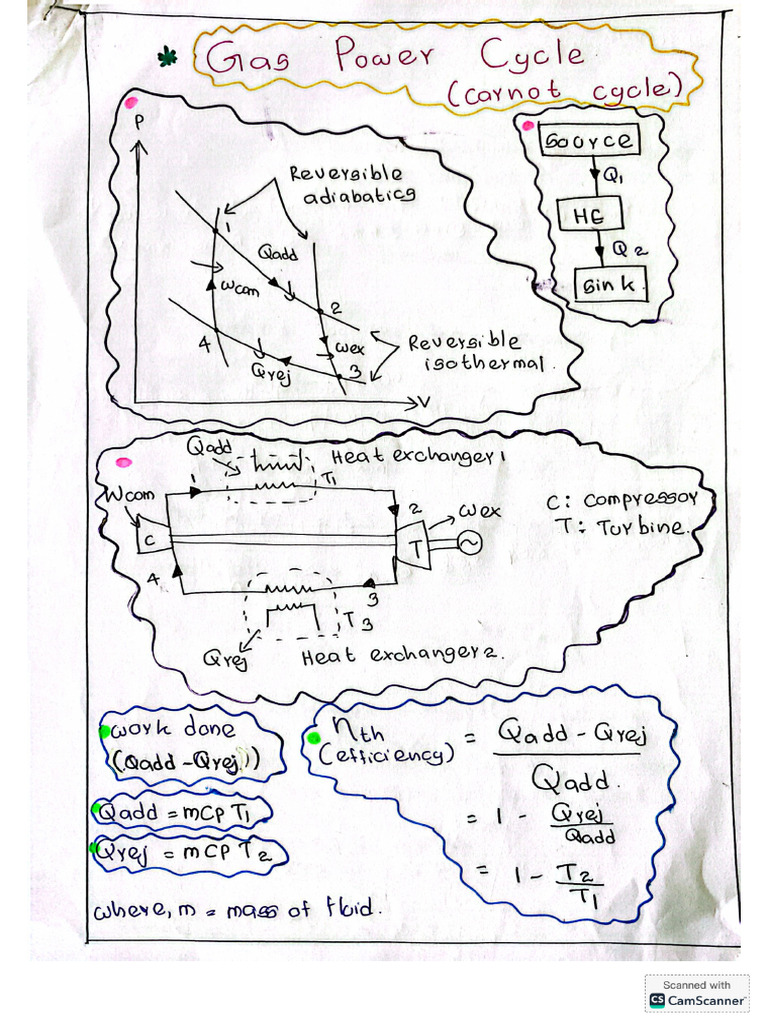 * Gas Power Cycle
(carnot cycle)
P
Reversible
adiabatics
1
Qadd
Wcom
2
4
Wex
Qrej
3
Reversible
isothermal.
V
Source
Q1
HE
Q2
Sink.
Qadd
Heat exchanger 1
T1
Wcom
1
2
Wex
C
T
4
3
T3
Qrej
Heat exchanger 2.
C: Compressor
T: Turbine.
Work done
(Qadd - Qrej))
Qadd = mCp T1
Qrej = mCp T2
where, m = mass of fluid.
ηth = Qadd - Qrej
(efficiency)
Qadd.
= 1 - Qrej
Qadd
= 1 - T2
T1
Scanned with
CS CamScanner